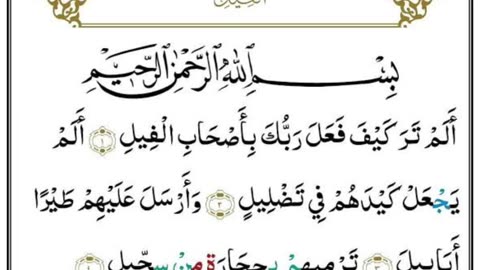 الفيل
بِسْمِ اللهِ الرَّحْمٰنِ الرَّحِيْمِ
أَلَمْ تَرَ كَيْفَ فَعَلَ رَبُّكَ بِأَصْحَابِ الْفِيلِ ۝١ أَلَمْ
يَجْعَلْ كَيْدَهُمْ فِي تَضْلِيلٍ ۝٢ وَأَرْسَلَ عَلَيْهِمْ طَيْرًا
أَبَابِيلَ ۝٣ تَرْمِيهِمْ بِحِجَارَةٍ مِنْ سِجِّيلٍ ۝٤